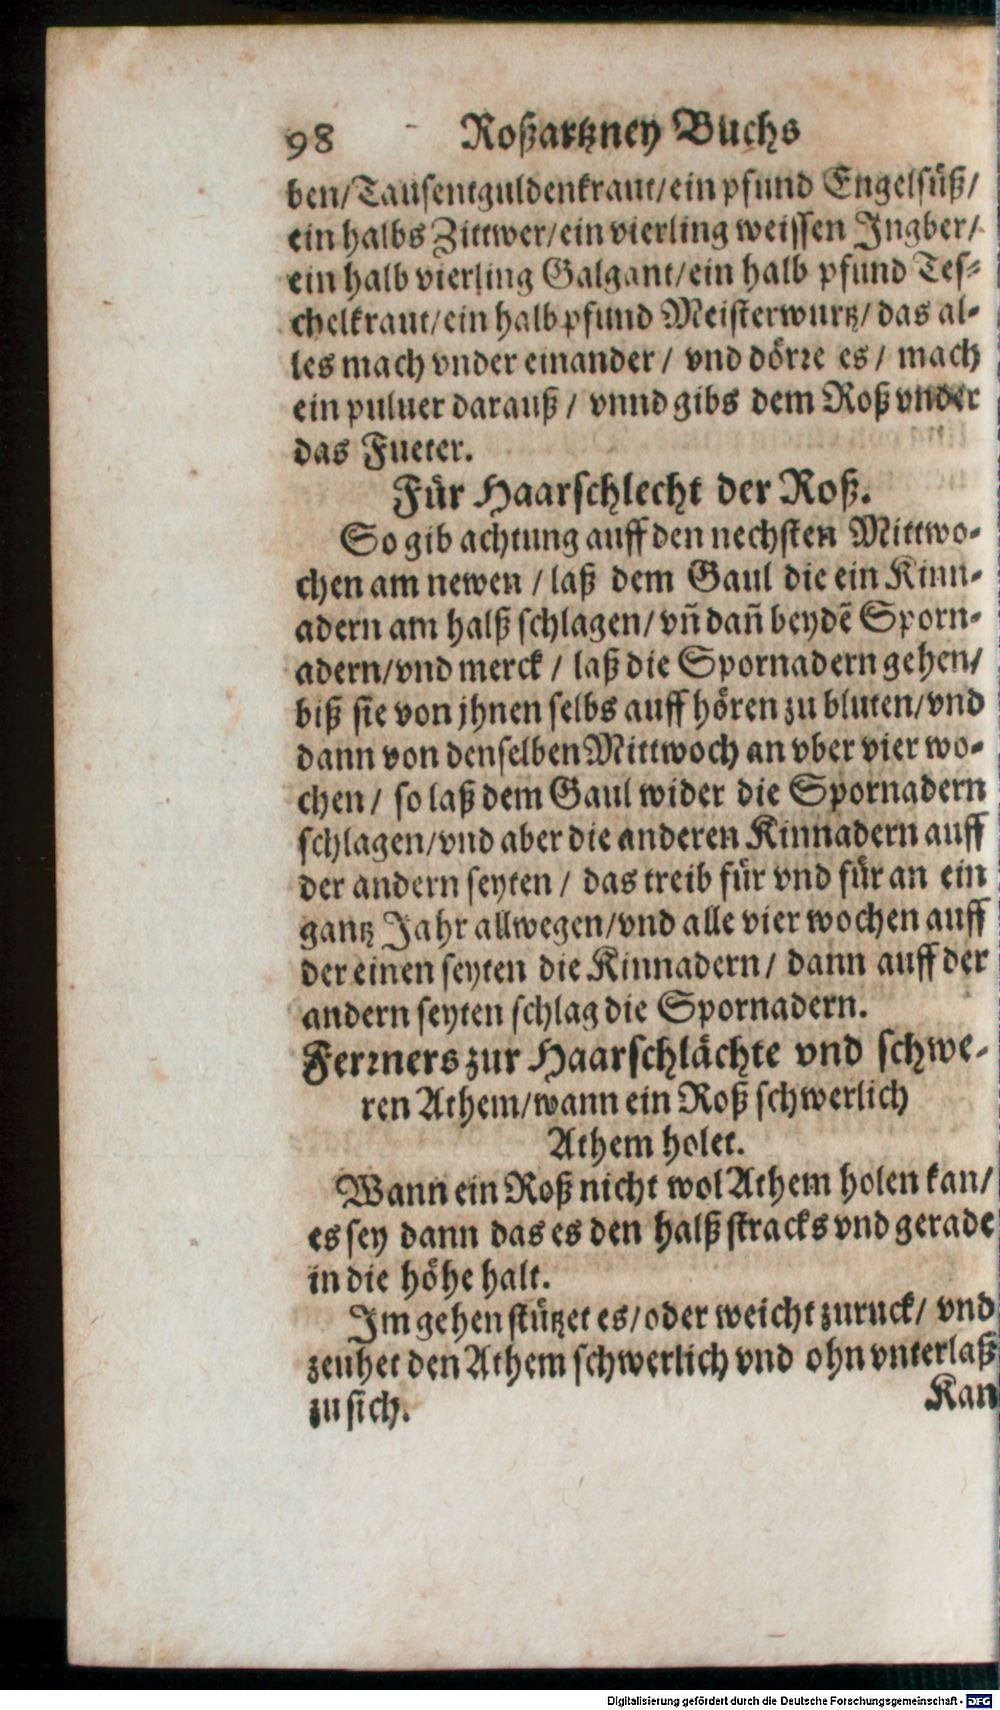 98 Roßartzney Buchs
ben/Tausentguldenkraut/ein pfund Engelsüß/
ein halbs Zittwer/ein vierling weissen Jngber/
ein halb vierling Galgant/ein halb pfund Tes-
chelkraut/ein halb pfund Meisterwurtz/ das al-
les mach vnder einander / vnd dörre es / mach
ein puluer darauß / vnnd gibs dem Roß vnder
das Fueter.
Für Haarschlecht der Roß.
So gib achtung auff den nechsten Mittwo-
chen am newen / laß dem Gaul die ein Kinn-
adern am halß schlagen/ vñ dañ beydẽ Sporn-
adern/vnd merck / laß die Spornadern gehen/
biß sie von jhnen selbs auff hören zu bluten/vnd
dann von denselben Mittwoch an vber vier wo-
chen / so laß dem Gaul wider die Spornadern
schlagen/vnd aber die anderen Kinnadern auff
der andern seyten / das treib für vnd für an ein
gantz Jahr allwegen/vnd alle vier wochen auff
der einen seyten die Kinnadern/ dann auff der
andern seyten schlag die Spornadern.
Ferrners zur Haarschlächte vnd schwe-
ren Athem/wann ein Roß schwerlich
Athem holet.
Wann ein Roß nicht wol Athem holen kan/
es sey dann das es den halß stracks vnd gerade
in die höhe halt.
Jm gehen stützet es/oder weicht zuruck/ vnd
zeuhet den Athem schwerlich vnd ohn vnterlaß
zu sich.
Kan
Digitalisierung gefördert durch die Deutsche Forschungsgemeinschaft - DFG